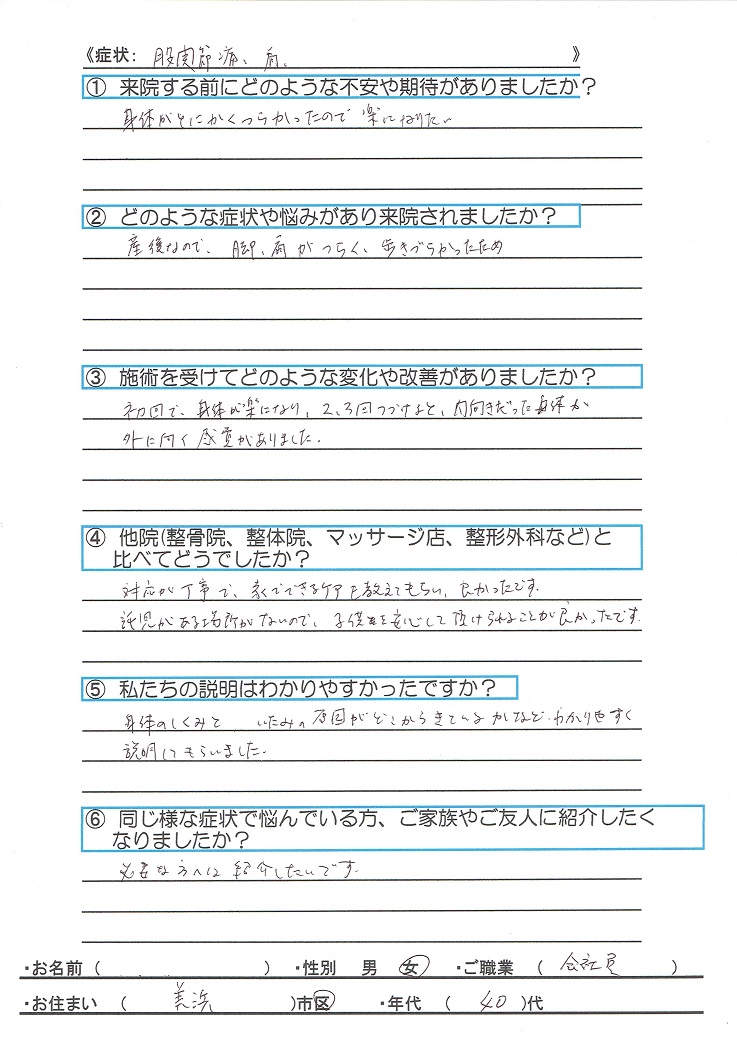 《症状: 股関節痛、肩、 》
① 来院する前にどのような不安や期待がありましたか？
身体がとにかくつらかったので 楽になりたい
② どのような症状や悩みがあり来院されましたか？
産後なので、脚、肩がつらく、歩きづらかったため
③ 施術を受けてどのような変化や改善がありましたか？
初回で、身体が楽になり、2、3回つづけると、内向きだった身体が
外に向く感覚がありました.
④ 他院(整骨院、整体院、マッサージ店、整形外科など)と
比べてどうでしたか？
対応が丁寧で、家でできるケアを教えてもらい、良かったです.
託児がある場所がないので、子供を安心して預けられることが良かったです.
⑤ 私たちの説明はわかりやすかったですか？
身体のしくみと いたみの原因がどこからきているかなど、わかりやすく
説明してもらいました.
⑥ 同じ様な症状で悩んでいる方、ご家族やご友人に紹介したく
なりましたか？
必要な方へは 紹介したいです.
・お名前 ( ) ・性別 男 女 ・ご職業 ( 会社員 )
・お住まい ( 美浜 )市区 ・年代 ( 40 )代